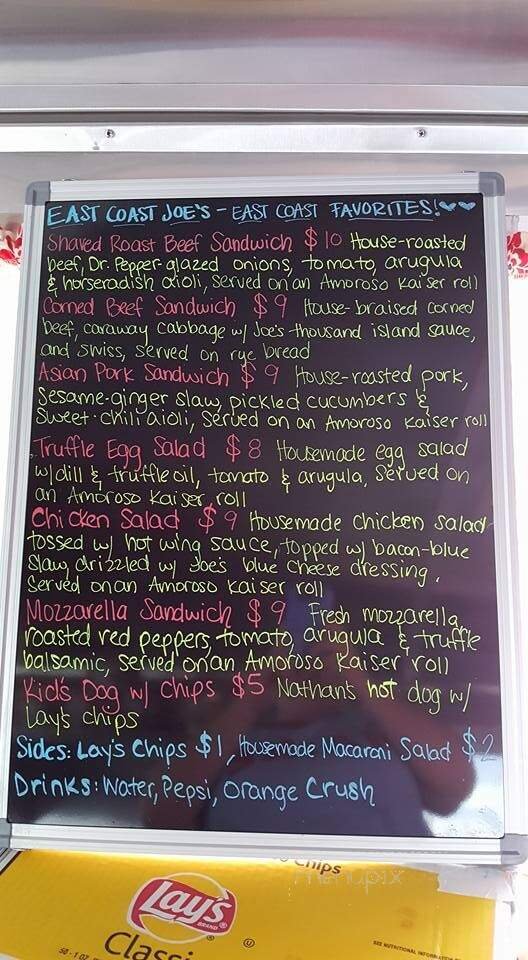 EAST COAST JOE'S - EAST COAST FAVORITES!
Shaved Roast Beef Sandwich $10 House-roasted
beef, Dr. Pepper-glazed onions, tomato, arugula
& horseradish aioli, served on an Amoroso Kaiser roll
Corned Beef Sandwich $9 House-braised corned
beef, caraway cabbage w/ Joe's thousand island sauce,
and swiss, served on rye bread
Asian Pork Sandwich $9 House-roasted pork,
Sesame-ginger slaw, pickled cucumbers &
Sweet-chili aioli, Served on an Amoroso Kaiser roll
Truffle Egg Salad $8 Housemade egg salad
w/dill & truffle oil, tomato & arugula, served on
an Amoroso Kaiser roll
Chicken Salad $9 Housemade chicken salad
tossed w/ hot wing sauce, topped w/ bacon-blue
slaw, drizzled w/ Joe's blue cheese dressing.
Served on an Amoroso Kaiser roll
Mozzarella Sandwich $9 Fresh mozzarella,
roasted red peppers, tomato, arugula & truffle
balsamic, served on an Amoroso Kaiser roll
Kid's Dog w/ chips $5 Nathan's hot dog w/
Lay's chips
Sides: Lay's Chips $1, Housemade Macaroni Salad $2
Drinks: Water, Pepsi, Orange Crush
Chips
menupix
Lay's
BRAND
Classi
50 - 1 OZ.
SEE NUTRITIONAL INFORMATION